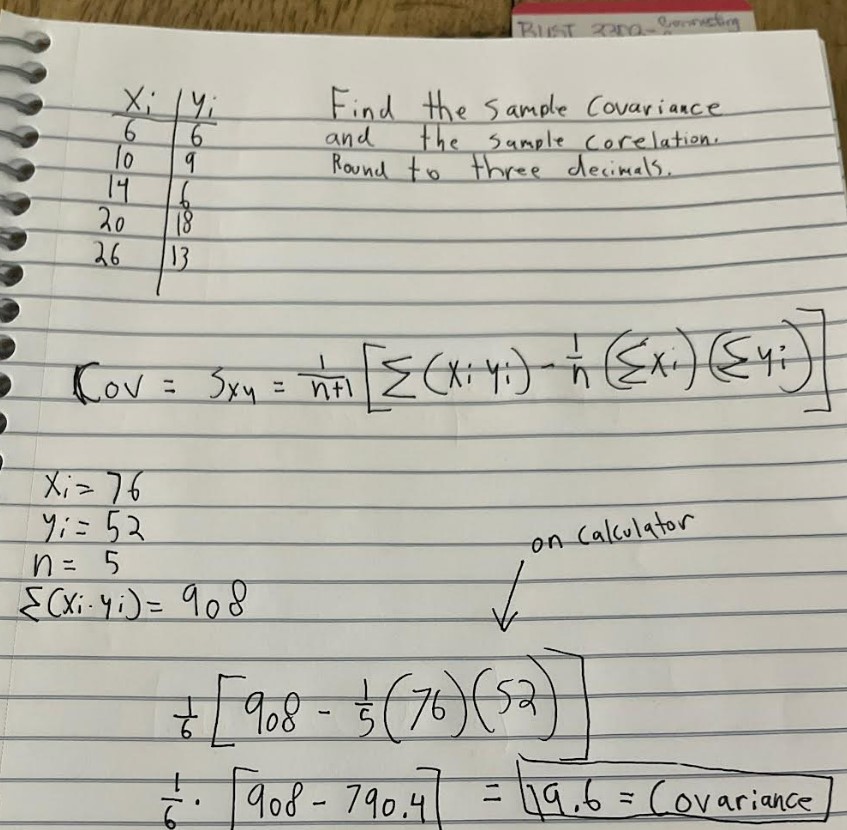 BUST 3300-
Xi | Yi
6 | 6
10 | 9
14 | 6
20 | 18
26 | 13
Find the Sample Covariance
and the sample corelation.
Round to three decimals.
Cov = Sxy = 1/n+1 [Σ(Xi Yi) - 1/n (Σxi)(Σyi)]
Xi = 76
Yi = 52
n = 5
Σ(Xi·yi) = 908
on Calculator
1/6 [908 - 1/5(76)(52)]
1/6 · [908 - 790.4] = 19.6 = Covariance